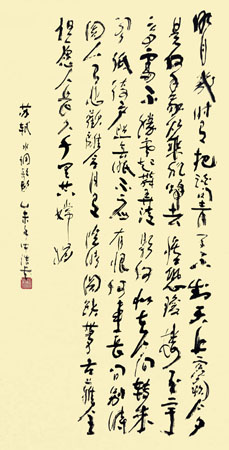 明月幾时有把酒问青天不知天上宫阙今夕
是何年我欲乘风归去惟恐琼楼玉宇
高處不勝寒起舞弄清影何似在人间转朱
阁低绮户照無眠不应有恨何事長向别時
圆人有悲歡離合月有陰晴圆缺此事古難全
但愿人長久千里共嬋娟
苏轼 水调歌头